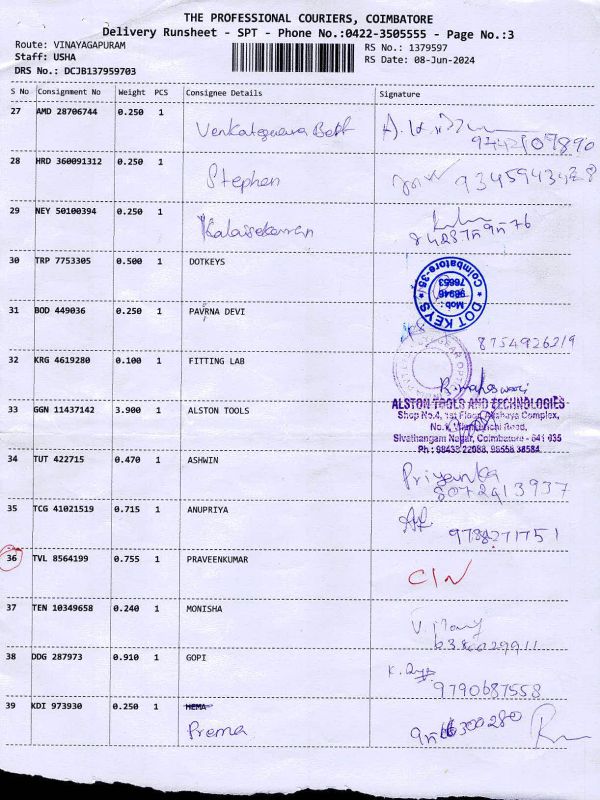 THE PROFESSIONAL COURIERS, COIMBATORE
Delivery Runsheet - SPT - Phone No.:0422-3505555 - Page No.:3
Route: VINAYAGAPURAM
RS No.: 1379597
Staff: USHA
RS Date: 08-Jun-2024
DRS No.: DCJB137959703
S No Consignment No Weight PCS Consignee Details Signature
27 AMD 28706744 0.250 1
28 HRD 360091312 0.250 1 Stephen
29 NEY 50100394 0.250 1 Kalaisekaran
30 TRP 7753305 0.500 1 DOTKEYS
DOT KEYS
Coimbatore-35
Mob:
98946
76653
31 BOD 449036 0.250 1 PAVRNA DEVI
8754926219
32 KRG 4619280 0.100 1 FITTING LAB
R. maheswari
33 GGN 11437142 3.900 1 ALSTON TOOLS
ALSTON TOOLS AND TECHNOLOGIES
Shop No.4, 1st Floor, Akshaya Complex,
Sivathangam Nagar, Coimbatore - 641 035
34 TUT 422715 0.470 1 ASHWIN Priyanka
8072913937
35 TCG 41021519 0.715 1 ANUPRIYA
9788271751
36 TVL 8564199 0.755 1 PRAVEENKUMAR C/N
37 TEN 10349658 0.240 1 MONISHA
38 DDG 287973 0.910 1 GOPI
9790687558
39 KDI 973930 0.250 1 HEMA
Prema